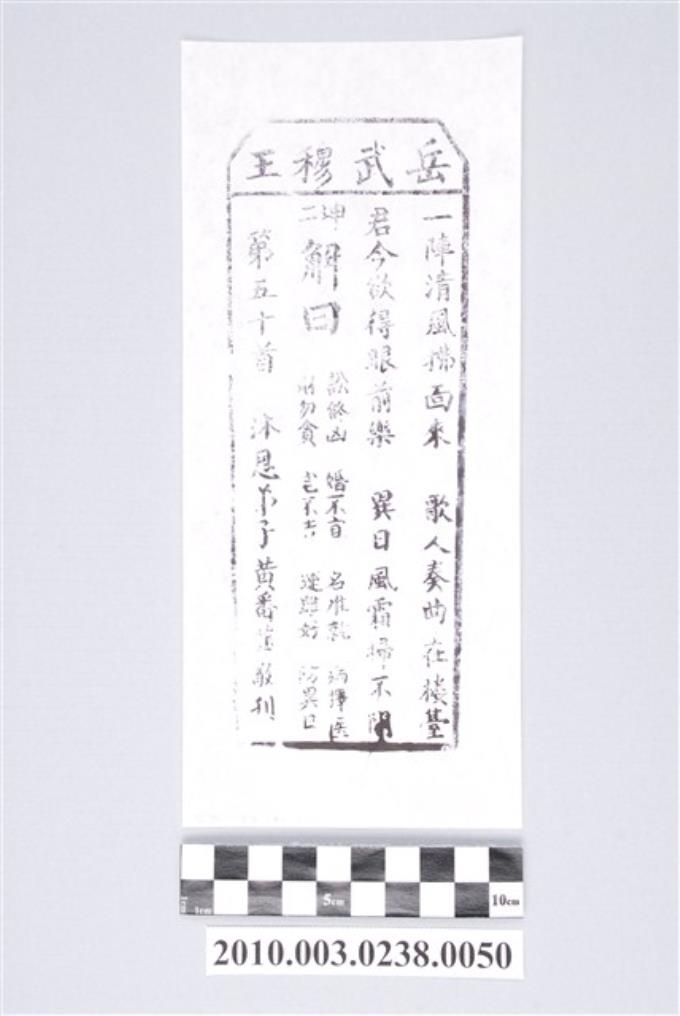 岳武穆王
一陣清風拂面來 歌人奏曲在樓臺
君今欲得眼前樂 異日風霜掃不開
坤二
解曰
訟終凶 婚不宜 名難就 病擇医
財勿貪 宅不吉 運雖好 防異日
第五十首 沐恩弟子黃番 敬刊
5cm
1cm
1cm
10cm
2010.003.0238.0050